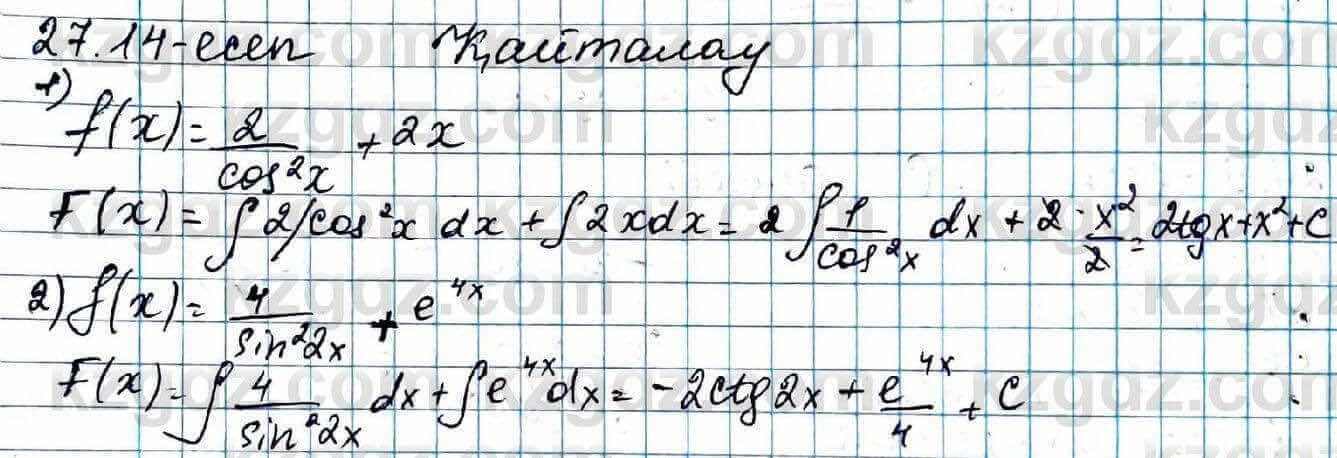 27.14-есеп Қайталау
1)
f(x) = 2/cos²x + 2x
F(x) = ∫2/cos²x dx + ∫2xdx = 2∫1/cos²x dx + 2·x²/2 = 2tgx+x²+C
2) f(x) = 4/sin²2x + e^4x
F(x) = ∫4/sin²2x dx + ∫e^4x dx = -2ctg2x + e^4x/4 + C
kzgdz.com